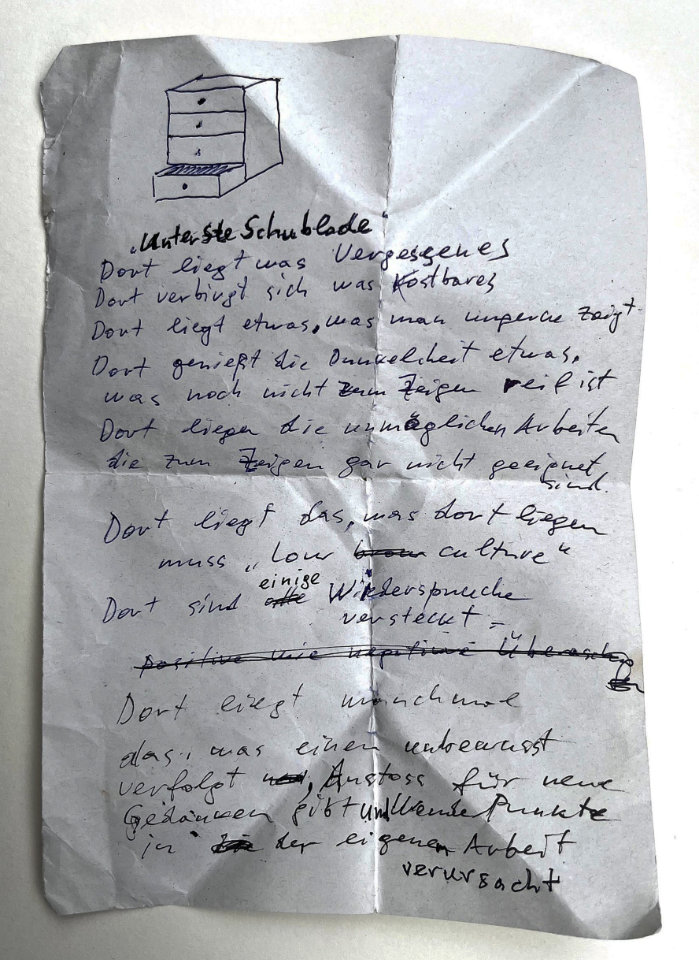 „Unterste Schublade"
Dort liegt was Vergessenes
Dort verbirgt sich was Kostbares
Dort liegt etwas, was man ungerne zeigt
Dort genießt die Dunkelheit etwas,
was noch nicht zum Zeigen reif ist
Dort liegen die unmöglichen Arbeiten
die zum Zeigen gar nicht geeignet
sind.
Dort liegt das, was dort liegen
muss „Low brow culture"
einige
Dort sind alle Wiedersprüche
versteckt –
positive wie negative Überaschungen
Dort liegt manchmal
das, was einen unbewusst
verfolgt, Anstoss für neue
Gedanken gibt und Wende Punkte
in der eigenen Arbeit
verursacht